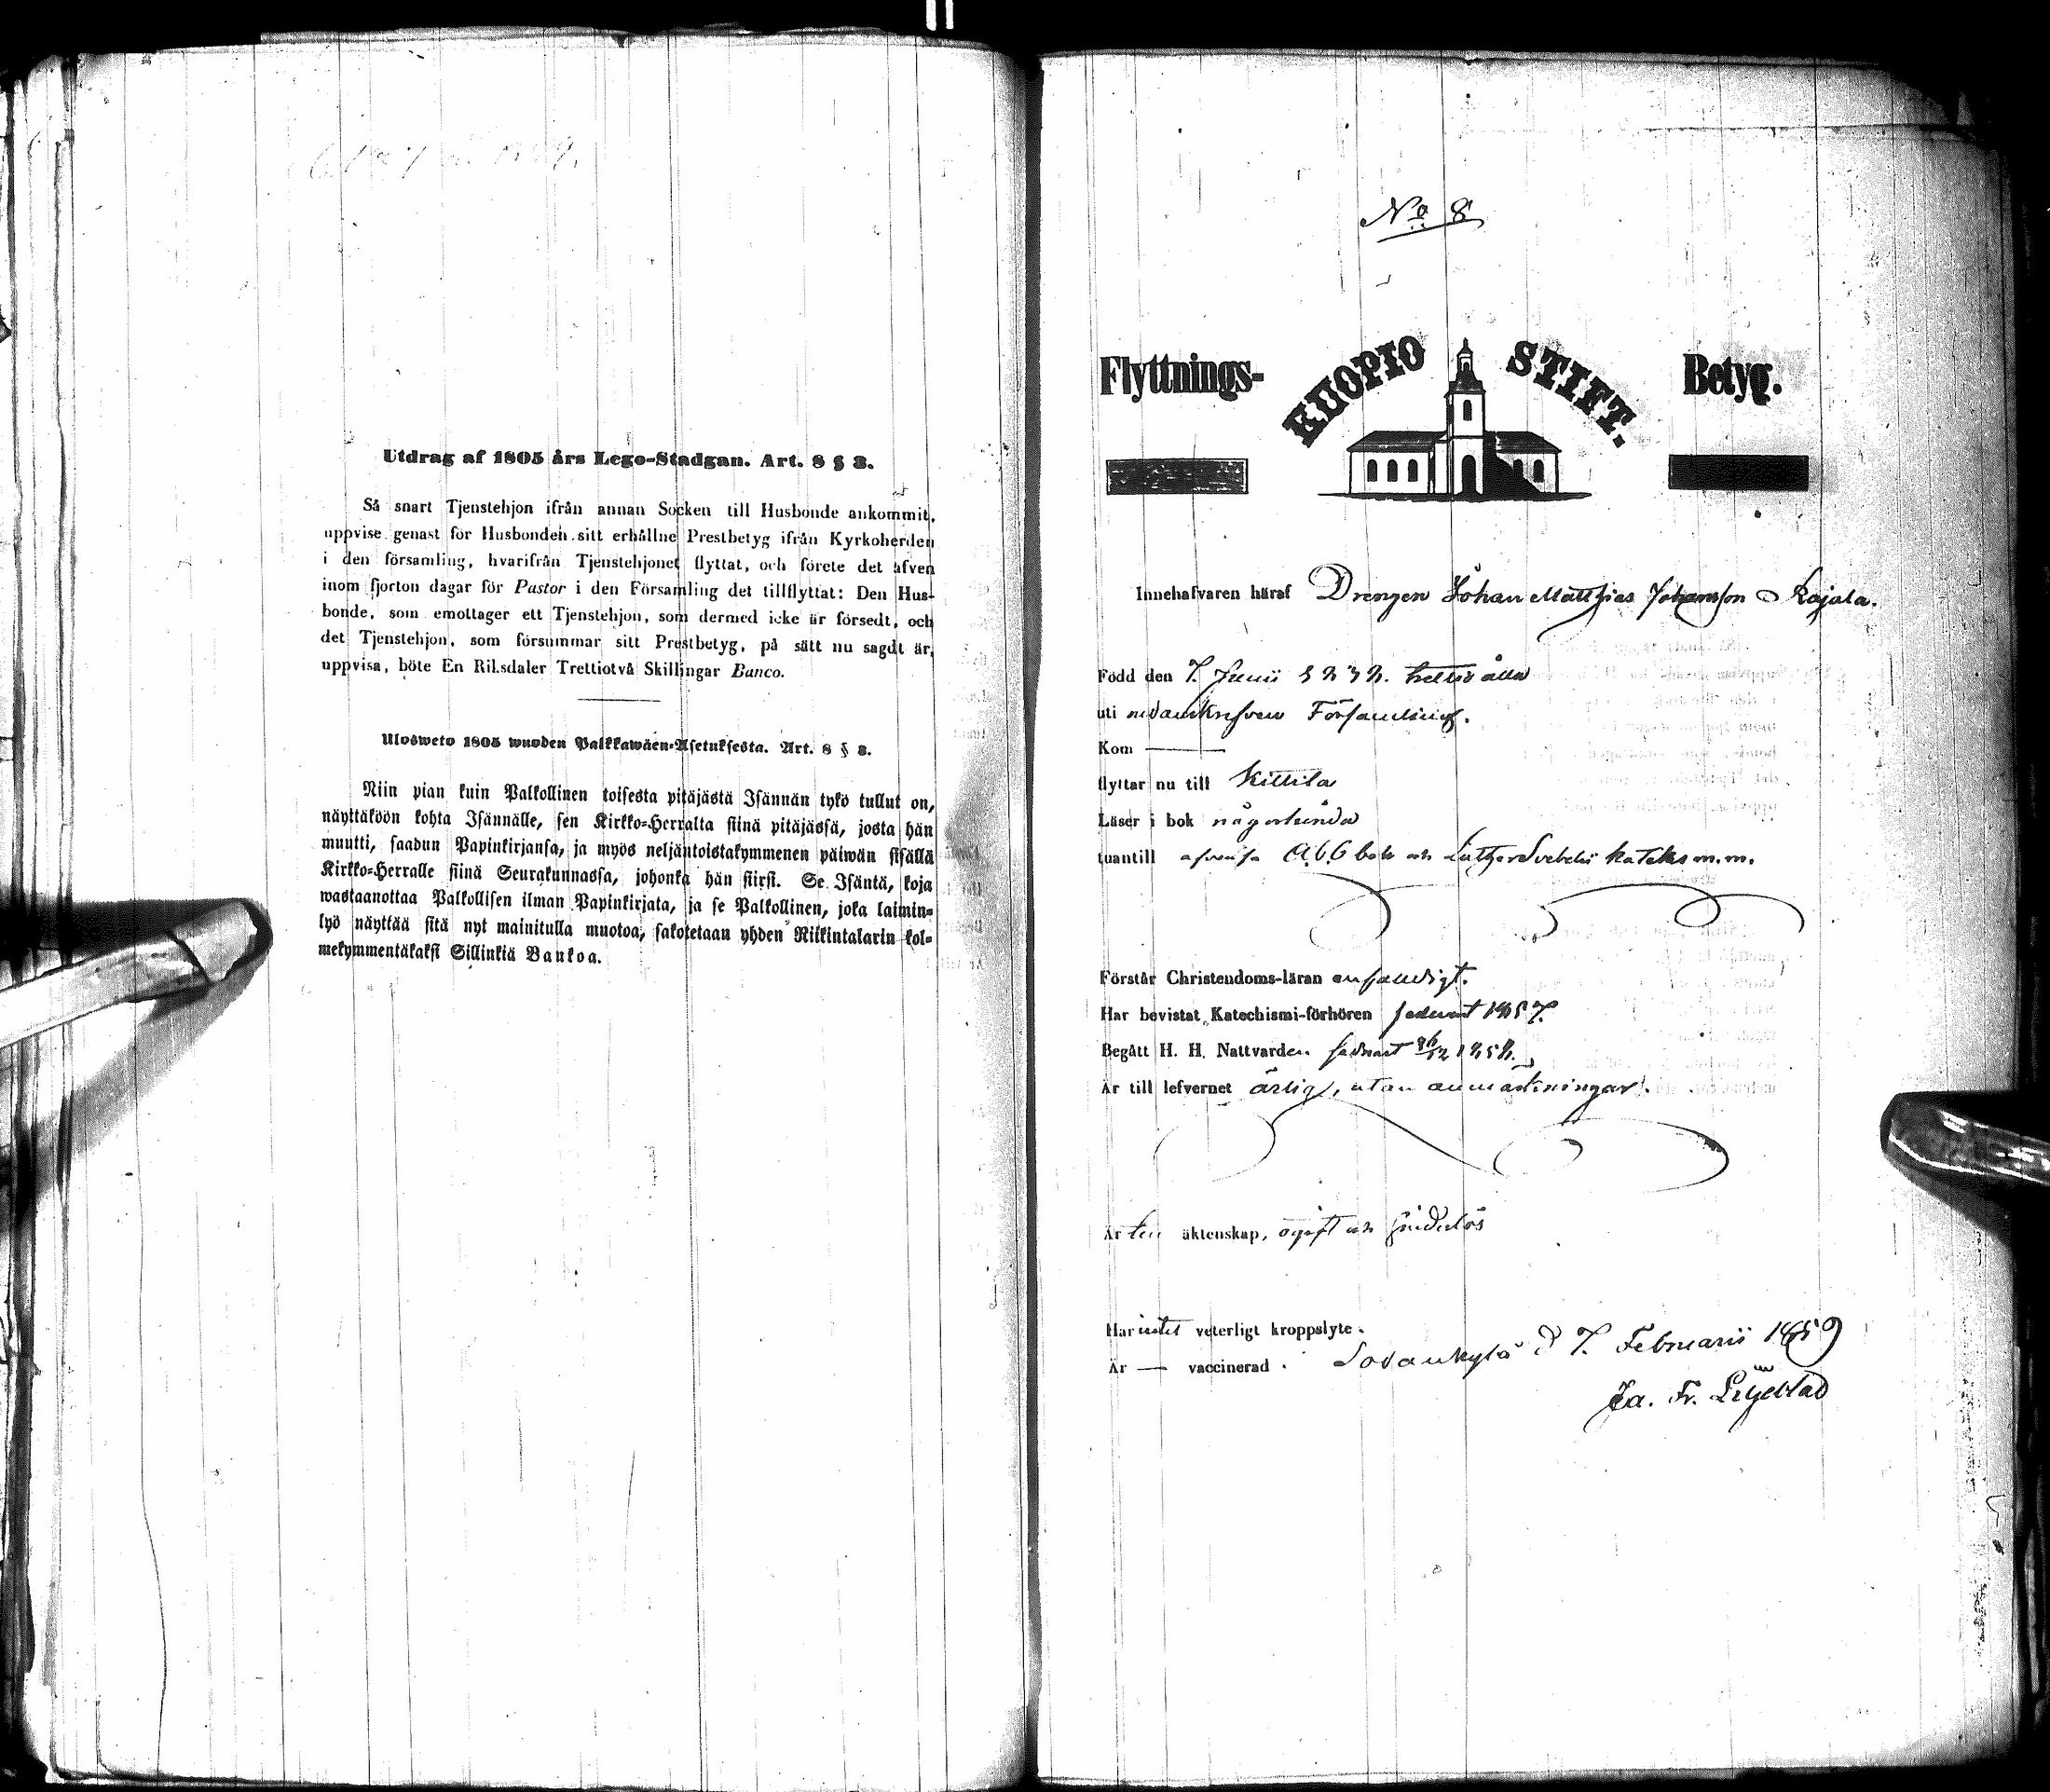 Utdrag af 1805 års Lego-Stadgan. Art. 8 § 3.
Så snart Tjenstehjon ifrån annan Socken till Husbonde ankommit,
uppvise genast för Husbonden sitt erhållne Prestbetyg ifrån Kyrkoherden
i den församling, hvarifrån Tjenstehjonet flyttat, och förete det äfven
inom fjorton dagar för Pastor i den Församling det tillflyttat: Den Hus-
bonde, som emottager ett Tjenstehjon, som dermed icke är försedt, och
det Tjenstehjon, som försummar sitt Prestbetyg, på sätt nu sagdt är,
uppvisa, böte En Rik.sdaler Trettiotvå Skillingar Banco.
Ulosweto 1805 wuoden Palkkawäen-Asetuksesta. Art. 8 § 3.
Niin pian kuin Palkollinen toisesta pitäjästä Isännän tykö tullut on,
näyttäköön kohta Isännälle, sen Kirkko-Herralta siinä pitäjässä, josta hän
muutti, saadun Papinkirjansa, ja myös neljäntoistakymmenen päiwän sisällä
Kirkko-Herralle siinä Seurakunnassa, johonka hän siirsi. Se Isäntä, koja
wastaanottaa Palkollisen ilman Papinkirjata, ja se Palkollinen, joka laimin-
lyö näyttää sitä nyt mainitulla muotoa, sakotetaan yhden Riikintalarin kol-
mekymmentäkaksi Sillinkiä Bankoa.
No 8
Flyttnings- KUOPIO STIFT. Betyg.
Innehafvaren häraf Drengen Johan Matthias Johansson Kajala.
Född den 7. Junii
uti Församling.
Kom —
flyttar nu till Kittilä
Läser i bok någorlunda
tuantill ABC bok och Luther Svebelii kateks m.m.
Förstår Christendoms-läran enfaldigt.
Har bevistat Katechismi-förhören sednast 1857.
Begått H. H. Nattvarden sednast 1858.
Är till lefvernet ärlig, utan anmärkningar.
Är äktenskap, ogift och
Har intet veterligt kroppslyte.
Är — vaccinerad. Sodankylä d 7. Februarii 1859
Fr.